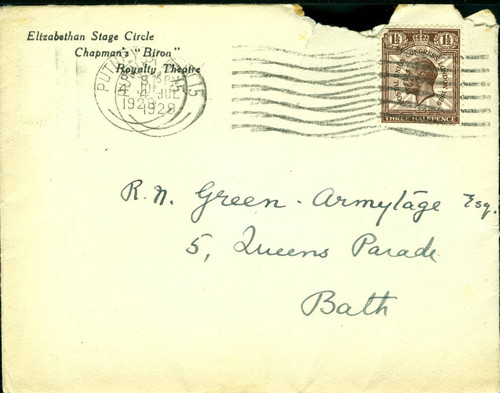 Elizabethan Stage Circle
Chapman's "Biron"
Royalty Theatre
PUTN
4 JUL
1929
1929
1½ 1½
POSTAL UNION CONGRESS LONDON 1929
THREE HALFPENCE
R. N. Green-Armytage Esq.
5, Queens Parade
Bath